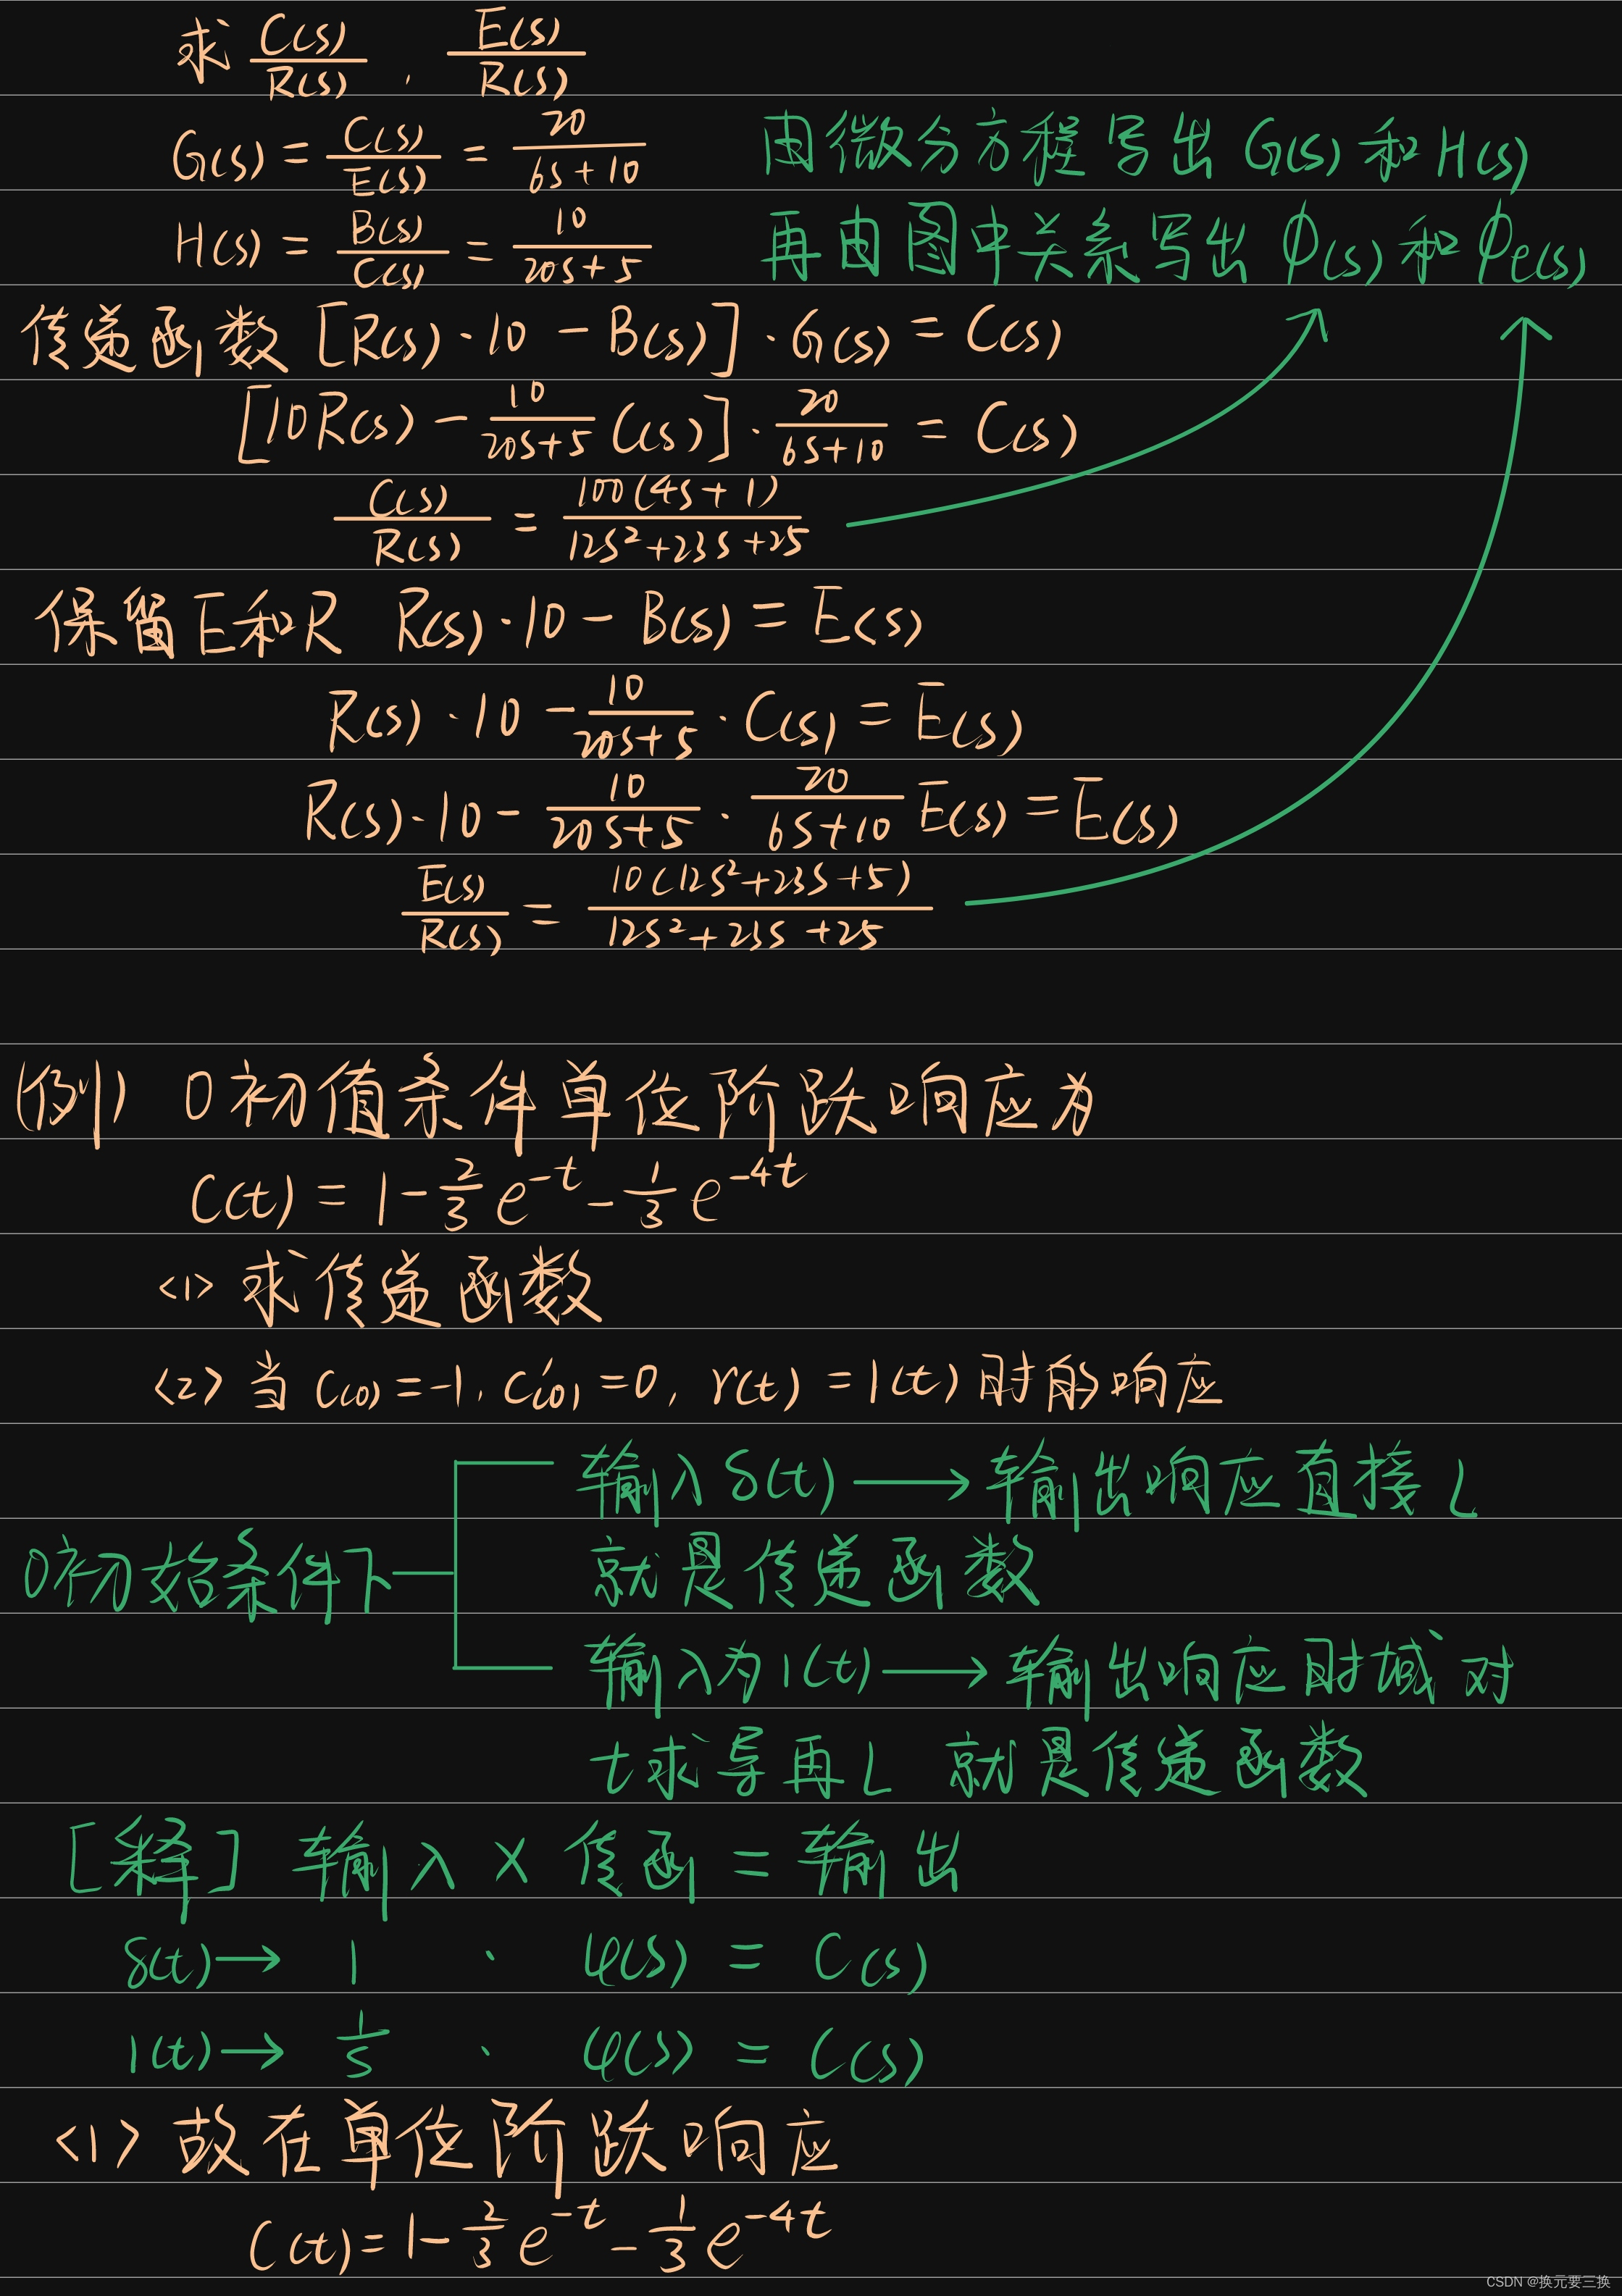 求 C(s)/R(s) , E(s)/R(s)
G(s) = C(s)/E(s) = 20/(6s+10) 由微分方程写出 G(s) 和 H(s)
H(s) = B(s)/C(s) = 10/(20s+5) 再由图中关系写出 φ(s) 和 φe(s)
传递函数 [R(s)·10 - B(s)]·G(s) = C(s)
[10R(s) - 10/(20s+5) C(s)]·20/(6s+10) = C(s)
C(s)/R(s) = 100(4s+1)/(12s²+23s+25)
保留E和R R(s)·10 - B(s) = E(s)
R(s)·10 - 10/(20s+5)·C(s) = E(s)
R(s)·10 - 10/(20s+5)·20/(6s+10) E(s) = E(s)
E(s)/R(s) = 10(12s²+23s+5)/(12s²+23s+25)
(例) 0初值条件单位阶跃响应为
C(t) = 1 - 2/3 e^{-t} - 1/3 e^{-4t}
<1> 求传递函数
<2> 当 C(0) = -1, C'(0) = 0, r(t) = 1(t) 时的响应
输入δ(t) → 输出响应直接L
0初始条件下 就是传递函数
输入为1(t) → 输出响应时域对
t求导再L 就是传递函数
[释] 输入 × 传函 = 输出
δ(t) → 1 · φ(s) = C(s)
1(t) → 1/s · φ(s) = C(s)
<1> 故在单位阶跃响应
C(t) = 1 - 2/3 e^{-t} - 1/3 e^{-4t}
CSDN @换元要三换